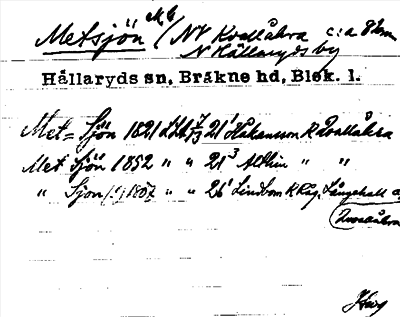 Metsjön (NV Kvallåkra c:a 8 km
N Hällaryds by
Hällaryds sn, Bräkne hd, Blek. l.
Met= Sjön 1821 21¹ Håkansson R Qvallåkra
Met Sjön 1852 " " 21³ " "
" Sjön 1807 " " 26¹ Lindbom R Kåg, Långehall
Qvallåkra